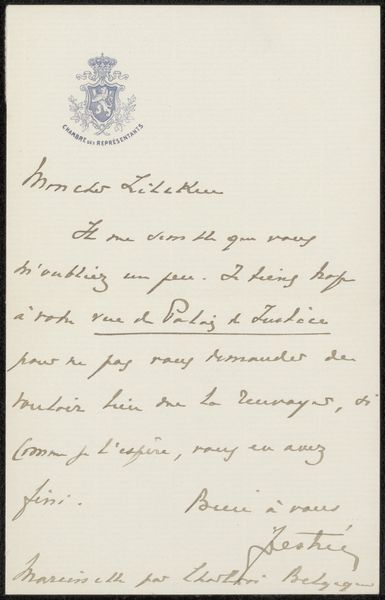 CHAMBRE DES REPRÉSENTANTS
Mon cher Zilcken
Il me semble que vous
m'oubliez un peu. Je tiens trop
à votre vue du Palais de Justice
pour ne pas vous demander de
vouloir bien me la renvoyer, si
comme je l'espère, vous en avez
fini.
Bien à vous
Destrée
Marcinelle par Charleroi Belgique